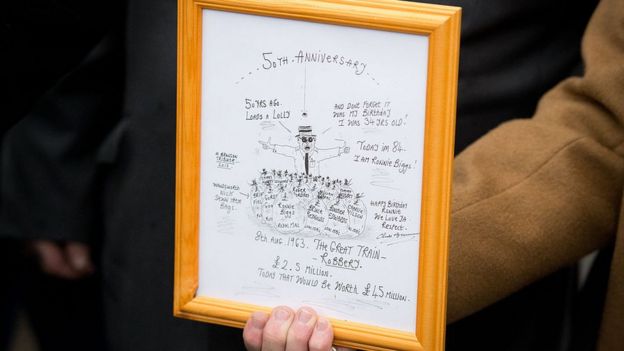 50TH ANNIVERSARY
50 YRS AGO.
LOADS A LOLLY
AND DON'T FORGET IT
WAS MY BIRTHDAY
I WAS 34 YRS OLD!
TODAY IM 84.
I AM RONNIE BIGGS.
A BRONSON
TRIBUTE
2013
WANDSWORTH
NICK
SEWN THEM
BAGS.
RONNIE
BIGGS
BRUCE
REYNOLDS
BUSTER
EDWARDS
CHARLIE
WILSON
ROYAL MAIL
HAPPY BIRTHDAY
RONNIE
WE LOVE YA
RESPECT.
8TH AUG. 1963. THE GREAT TRAIN
- ROBBERY.
£2.5 MILLION.
TODAY THAT WOULD BE WORTH £45 MILLION.